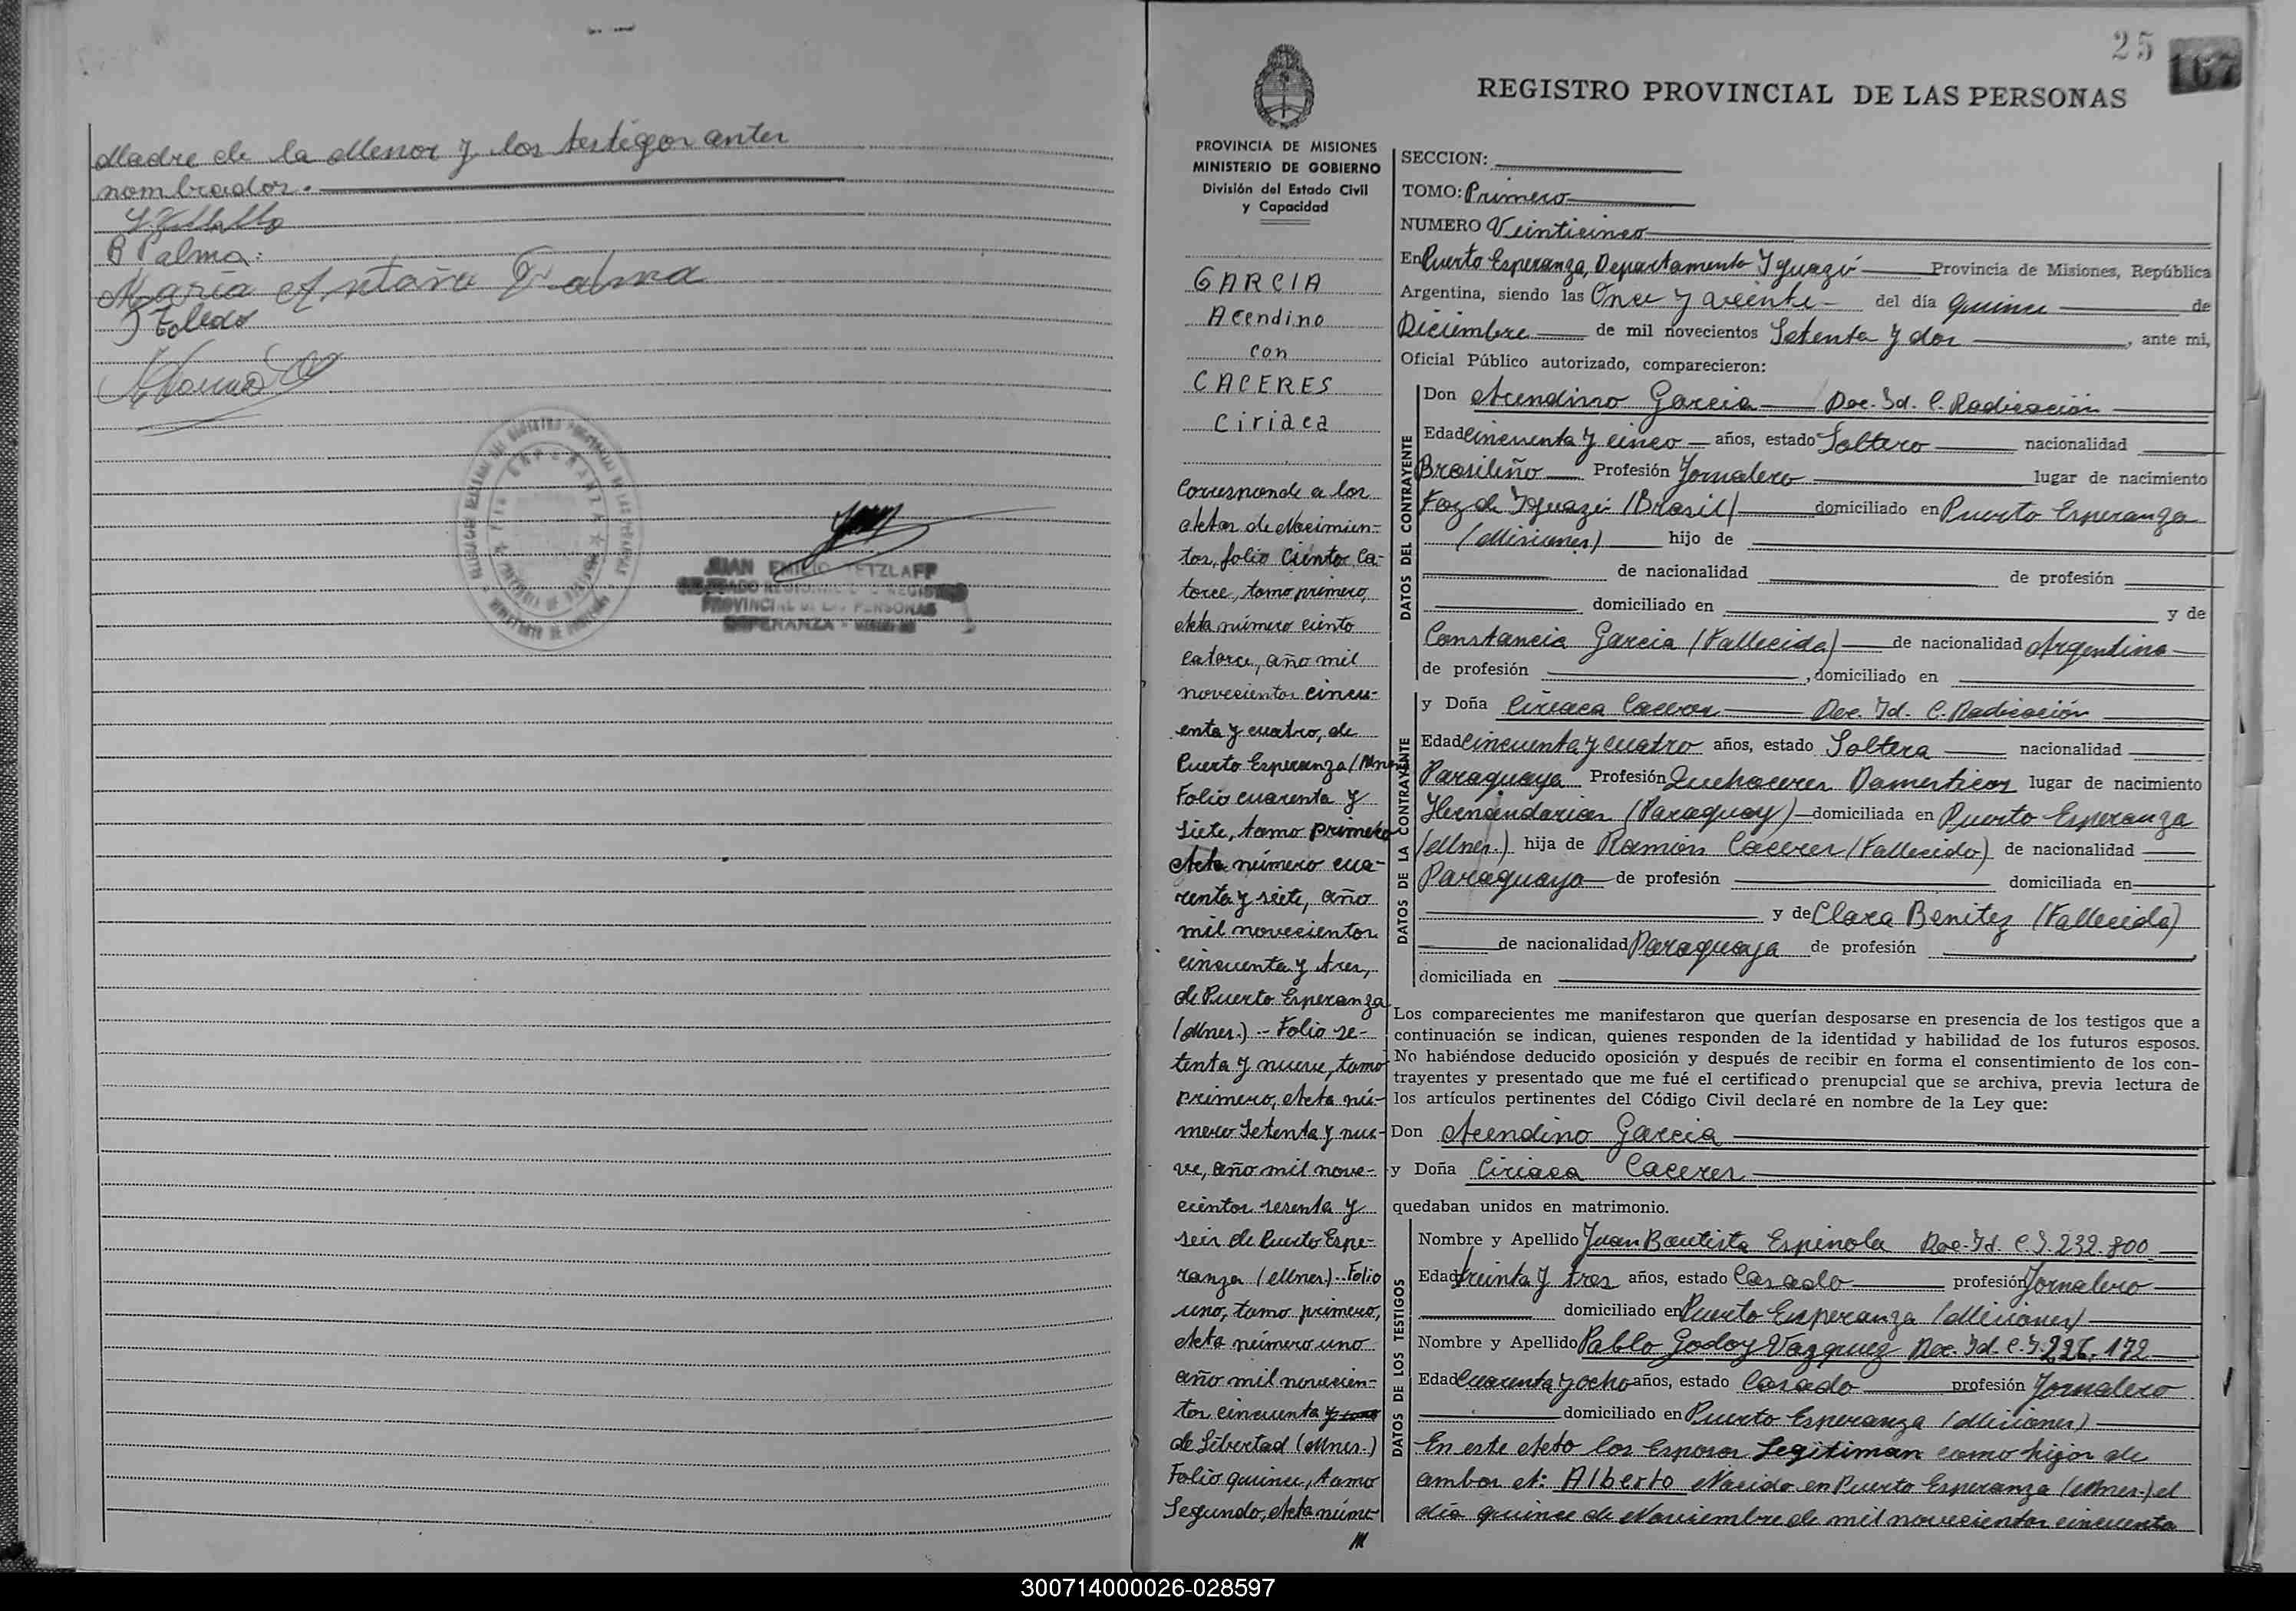 Madre de la Menor y los testigos antes
nombrados.
R Palma.
Maria Antonia Palma
J Toledo
JUAN EMILIO TETZLAFF
DELEGADO REGIONAL REGISTRO
PROVINCIAL DE LAS PERSONAS
ESPERANZA - MISIONES
25
167
REGISTRO PROVINCIAL DE LAS PERSONAS
PROVINCIA DE MISIONES
MINISTERIO DE GOBIERNO
División del Estado Civil
y Capacidad
GARCIA
Acendino
con
CACERES
Ciriaca
Corresponde a los
Actas de Nacimien-
tos, folio Ciento Ca-
torce, tomo primero,
Acta número ciento
Catorce, año mil
novecientos cincu-
enta y cuatro, de
Puerto Esperanza (Mnes)
Folio cuarenta y
siete, tomo primero
Acta número cua-
renta y siete, año
mil novecientos
cincuenta y tres,
de Puerto Esperanza
(Mnes.) - Folio se-
tenta y nueve, tomo
primero, Acta nú-
mero Setenta y nue-
ve, año mil nove-
cientos sesenta y
seis de Puerto Espe-
ranza (Mnes.)-Folio
uno, tomo primero,
Acta número uno
año mil novecien-
tos cincuenta
de Libertad (Mnes.)
Folio quince, tomo
Segundo, Acta núme-
SECCION:
TOMO: Primero
NUMERO Veinticinco
En Puerto Esperanza, Departamento Iguazú Provincia de Misiones, República
Argentina, siendo las Once y veinte del día quince de
Diciembre de mil novecientos Setenta y dos , ante mi,
Oficial Público autorizado, comparecieron:
DATOS DEL CONTRAYENTE
Don Acendino Garcia Doc. Id. C. Radicación
Edad Cincuenta y cinco años, estado Soltero nacionalidad
Brasileño Profesión Jornalero lugar de nacimiento
Foz de Iguazú (Brasil) domiciliado en Puerto Esperanza
(Misiones) hijo de
de nacionalidad de profesión
domiciliado en y de
Constancia Garcia (Fallecida) de nacionalidad Argentina
de profesión , domiciliado en
DATOS DE LA CONTRAYENTE
y Doña Ciriaca Caceres Doc. Id. C. Radicación
Edad Cincuenta y cuatro años, estado Soltera nacionalidad
Paraguaya Profesión Quehaceres Domesticos lugar de nacimiento
Hernandarias (Paraguay) domiciliada en Puerto Esperanza
(Mnes.) hija de Ramón Caceres (Fallecido) de nacionalidad
Paraguayo de profesión domiciliada en
y de Clara Benitez (Fallecida)
de nacionalidad Paraguaya de profesión
domiciliada en
Los comparecientes me manifestaron que querían desposarse en presencia de los testigos que a
continuación se indican, quienes responden de la identidad y habilidad de los futuros esposos.
No habiéndose deducido oposición y después de recibir en forma el consentimiento de los con-
trayentes y presentado que me fué el certificado prenupcial que se archiva, previa lectura de
los artículos pertinentes del Código Civil declaré en nombre de la Ley que:
Don Acendino Garcia
y Doña Ciriaca Caceres
quedaban unidos en matrimonio.
DATOS DE LOS TESTIGOS
Nombre y Apellido Juan Bautista Espinola Doc. Id. C.I. 232.800
Edad treinta y tres años, estado Casado profesión Jornalero
domiciliado en Puerto Esperanza (Misiones)
Nombre y Apellido Pablo Godoy Vazquez Doc. Id. C.I. 226.172
Edad Cuarenta y ocho años, estado Casado profesión Jornalero
domiciliado en Puerto Esperanza (Misiones)
En este Acto los Esposos Legitiman como hijos de
ambos A: Alberto Nacido en Puerto Esperanza (Mnes.) el
día quince de Noviembre de mil novecientos cincuenta
300714000026-028597